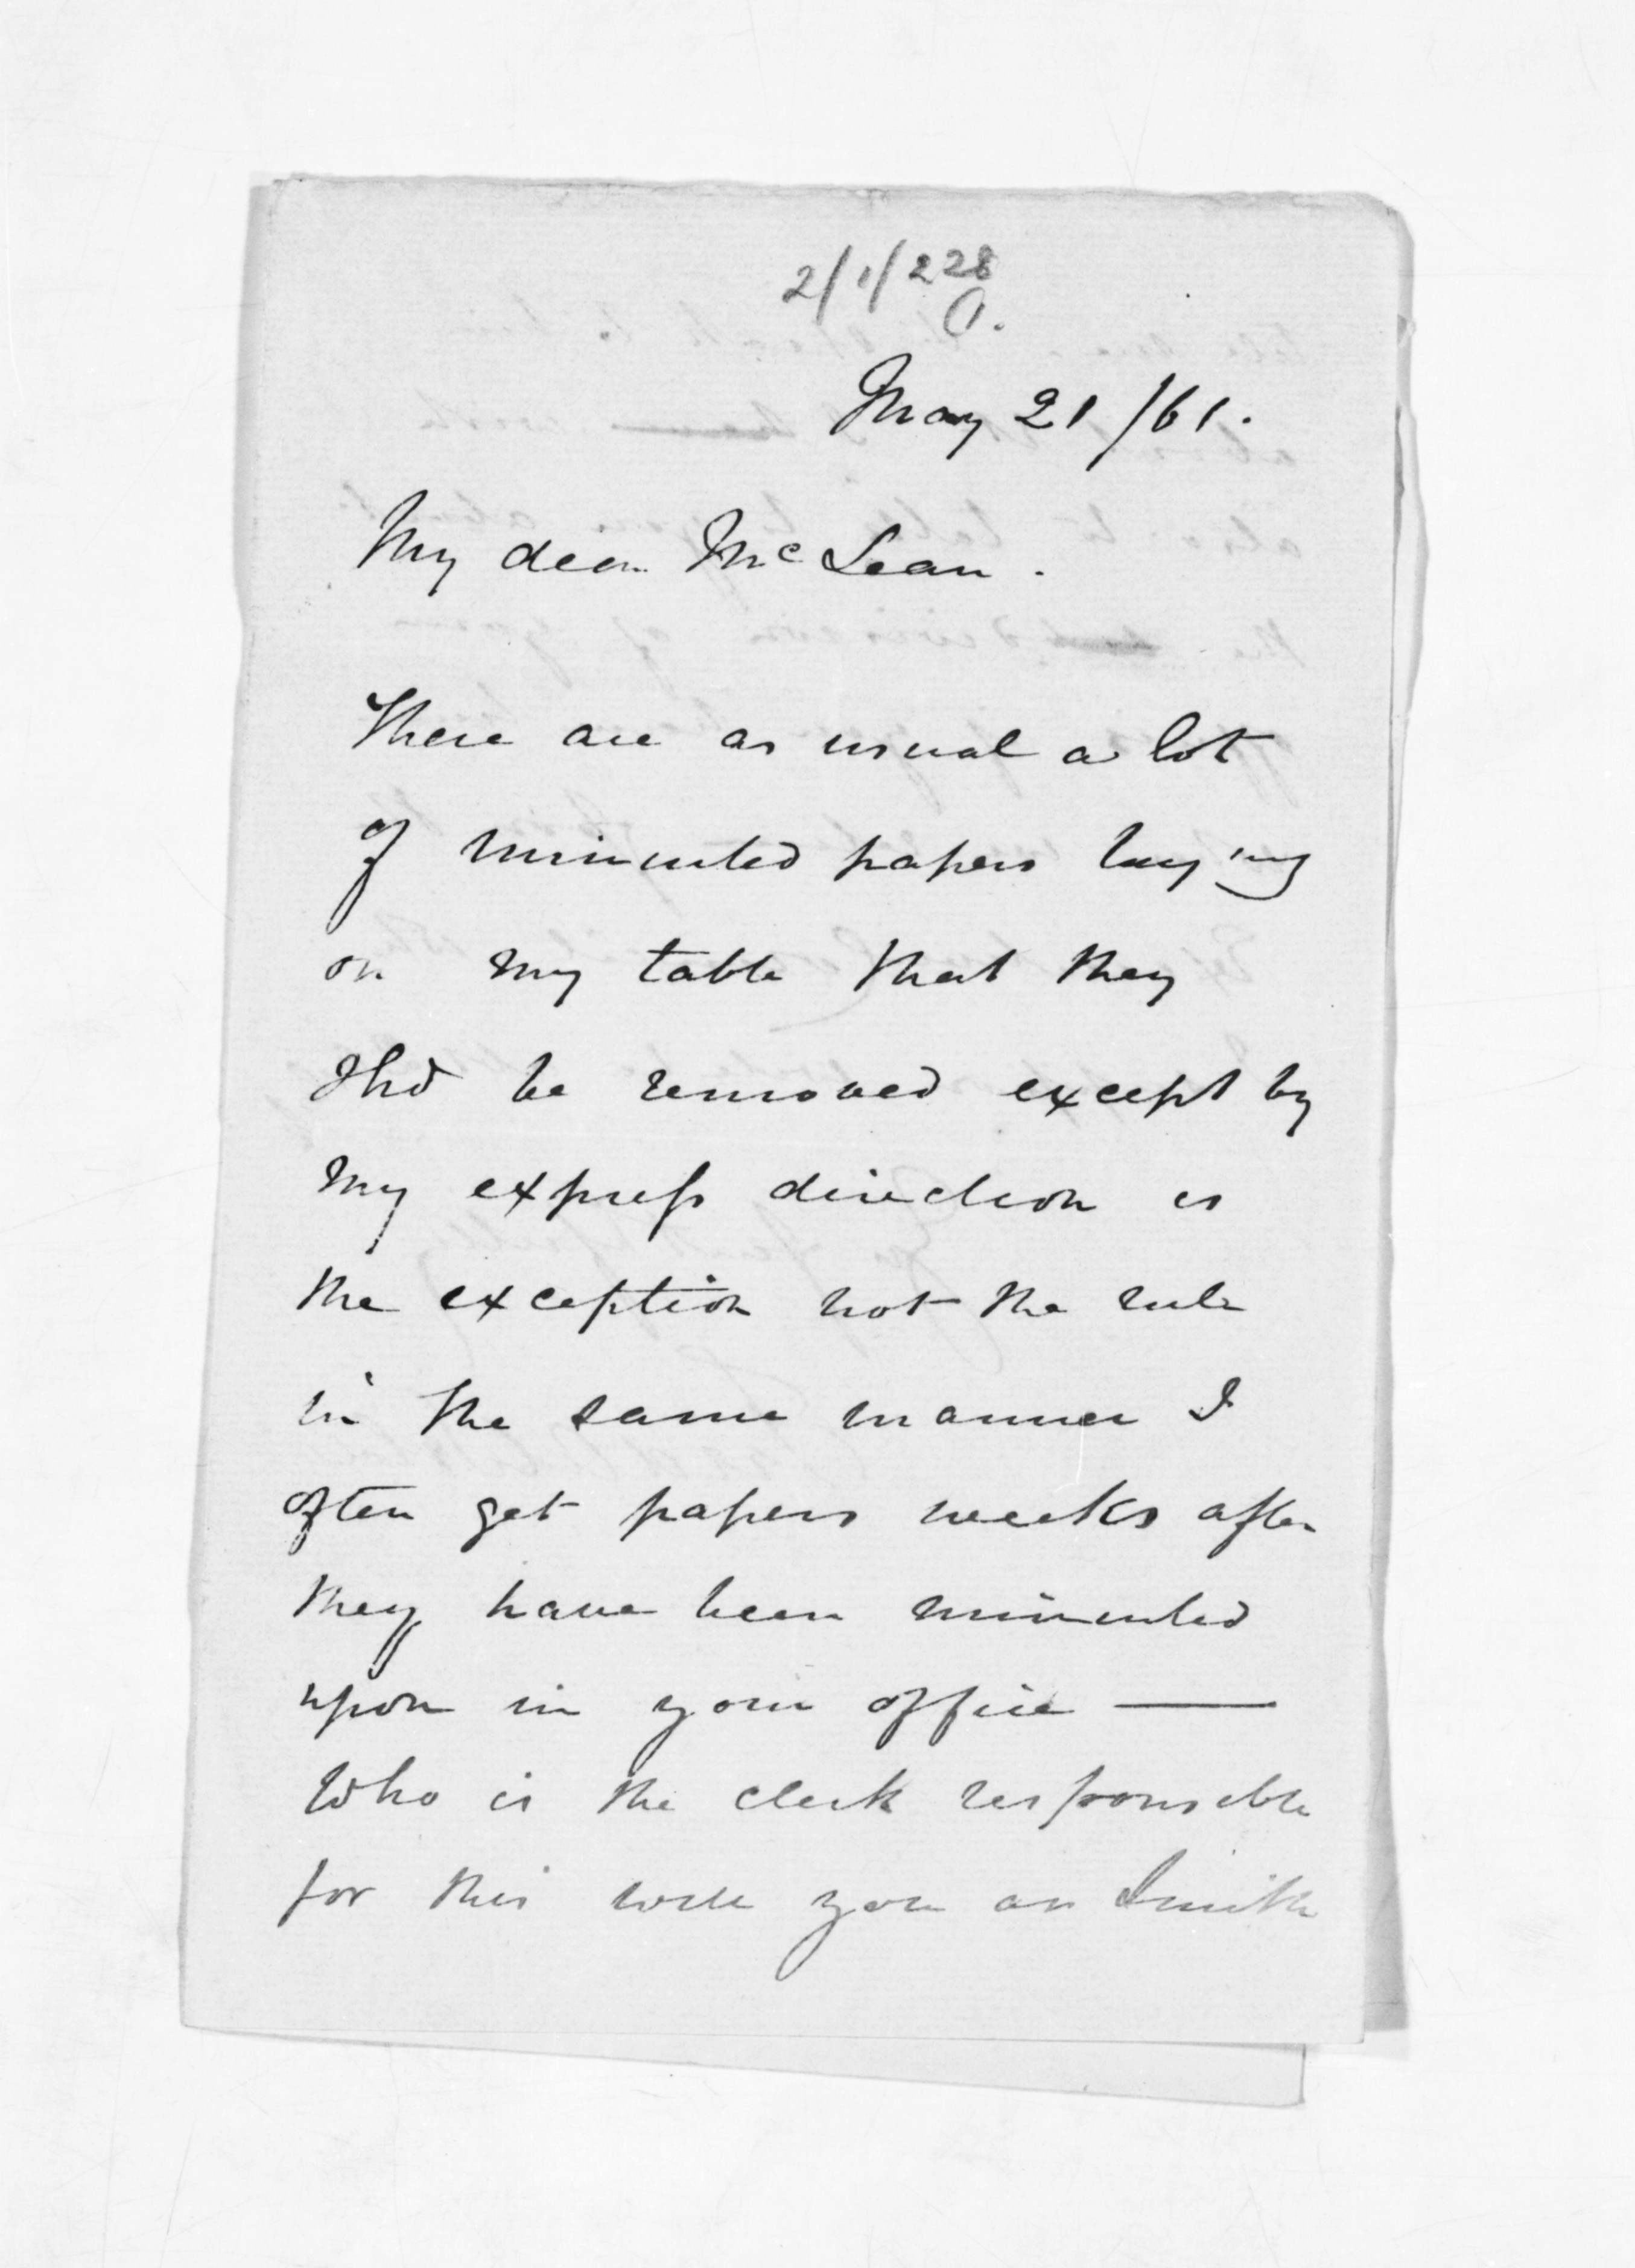 2/1/228
O.
May 21/61.
My dear McLean.
There are as usual a lot
of minuted papers laying
on my table that they
Shd be removed except by
my express direction is
the exception not the rule
in the same manner I
often get papers weeks after
they have been minuted
upon in your office —
Who is the clerk responsible
for this will you or Smith